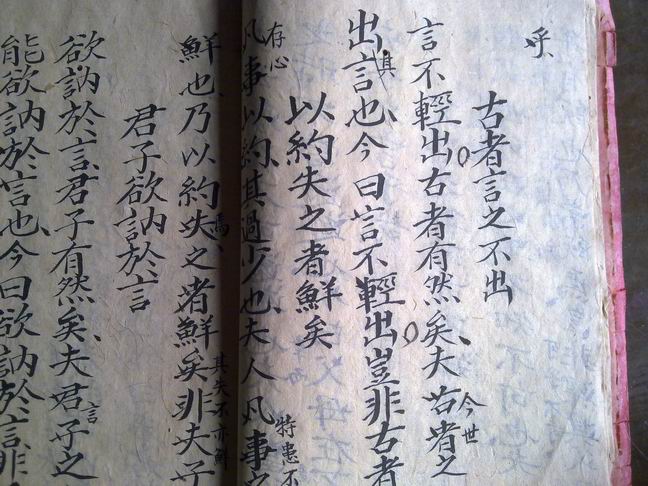 乎
古者言之不出
言不輕出古者有然矣夫古者之
今世
出言也今曰言不輕出豈非古者
其
以約失之者鮮矣
特患不
凡事以約其過少也夫人凡事之
存心
鮮也乃以約失之者鮮矣非夫子
焉
其失不亦鮮
君子欲訥於言
欲訥於言君子有然矣夫君子之
言
能欲訥於言也今曰欲訥於言非